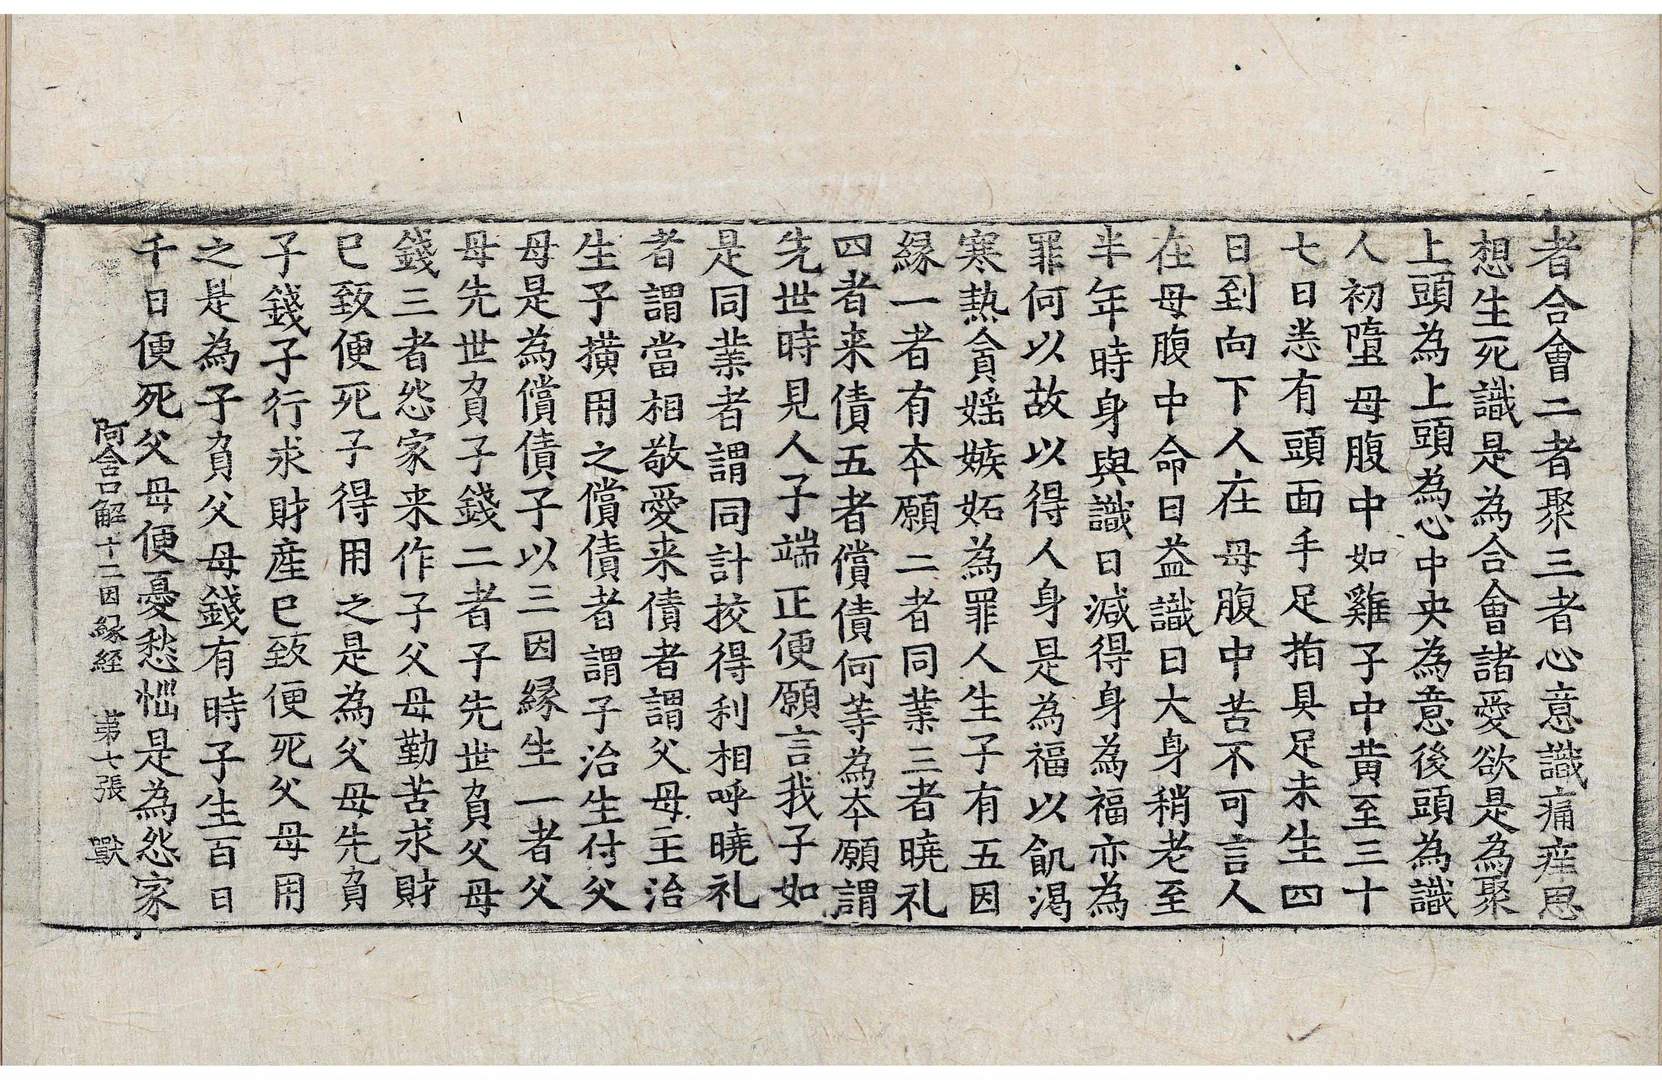 者合會二者聚三者心意識痛痒思
想生死識是為合會諸愛欲是為聚
上頭為上頭為心中央為意後頭為識
人初墮母腹中如雞子中黃至三十
七日悉有頭面手足指具足未生四
日到向下人在母腹中苦不可言人
在母腹中命日益識日大身稍老至
半年時身與識日減得身為福亦為
罪何以故以得人身是為福以飢渴
寒熱貪婬嫉妬為罪人生子有五因
緣一者有夲願二者同業三者曉礼
四者来債五者償債何等為夲願謂
先世時見人子端正便願言我子如
是同業者謂同計挍得利相呼曉礼
者謂當相敬愛来債者謂父母主治
生子撗用之償債者謂子治生付父
母是為償債子以三因緣生一者父
母先世負子錢二者子先世負父母
錢三者怨家来作子父母勤苦求財
已致便死子得用之是為父母先負
子錢子行求財產已致便死父母用
之是為子負父母錢有時子生百日
千日便死父母便憂愁惱是為怨家
阿含口解十二因緣経　第七張　獸